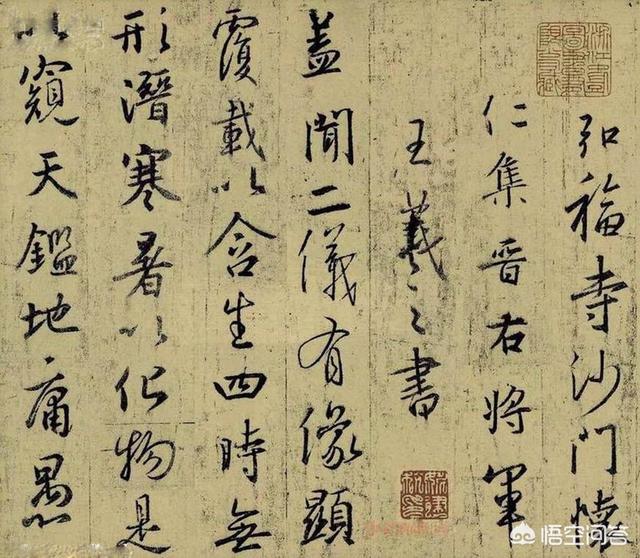 弘福寺沙門懷
仁集晉右將軍
王羲之書
蓋聞二儀有像顯
覆載以含生四時無
形潛寒暑以化物是
以窺天鑑地庸愚
悟空问答